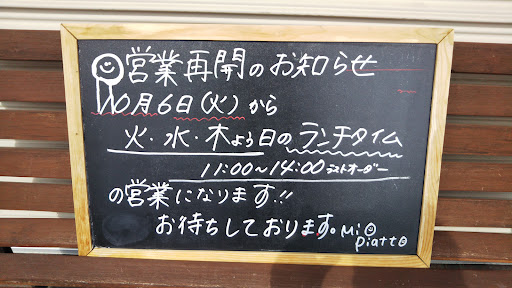 営業再開のお知らせ
10月6日(火)から
火・水・木よう日のランチタイム
11:00~14:00ラストオーダー
の営業になります!!
お待ちしております。Mio
piatto